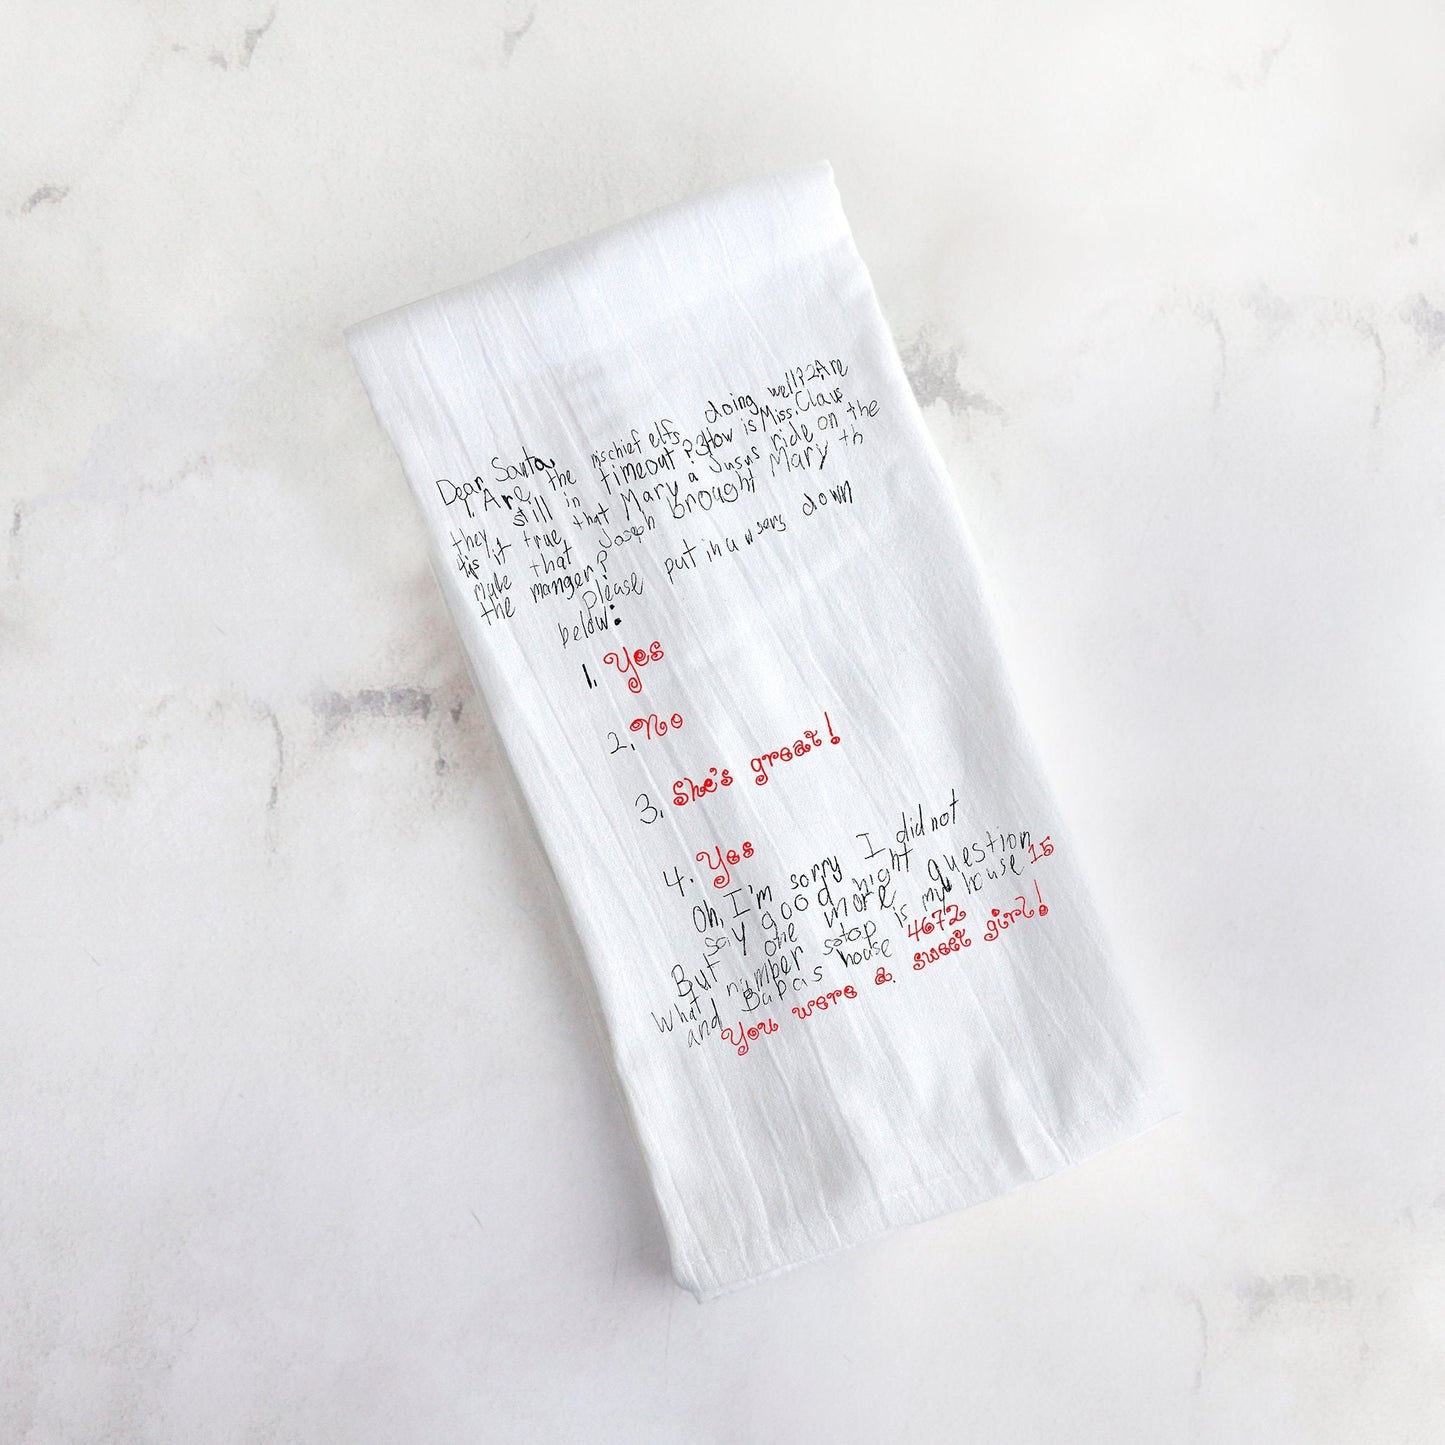 Dear Santa,
1. Are the mischief elfs doing well? 2. Are
they still in timeout? 3. How is Miss. Claus
4. is it true that Mary a Jusus ride on the
make that Joseph brought Mary th
the manger?
Please put in awsers down
below:
1. Yes
2. No
3. She's great!
4. Yes
Oh, I'm sorry I did not
say good night
But one more question
What number sotop is my house 15
and Bapas house 4672
You were a sweet girl!